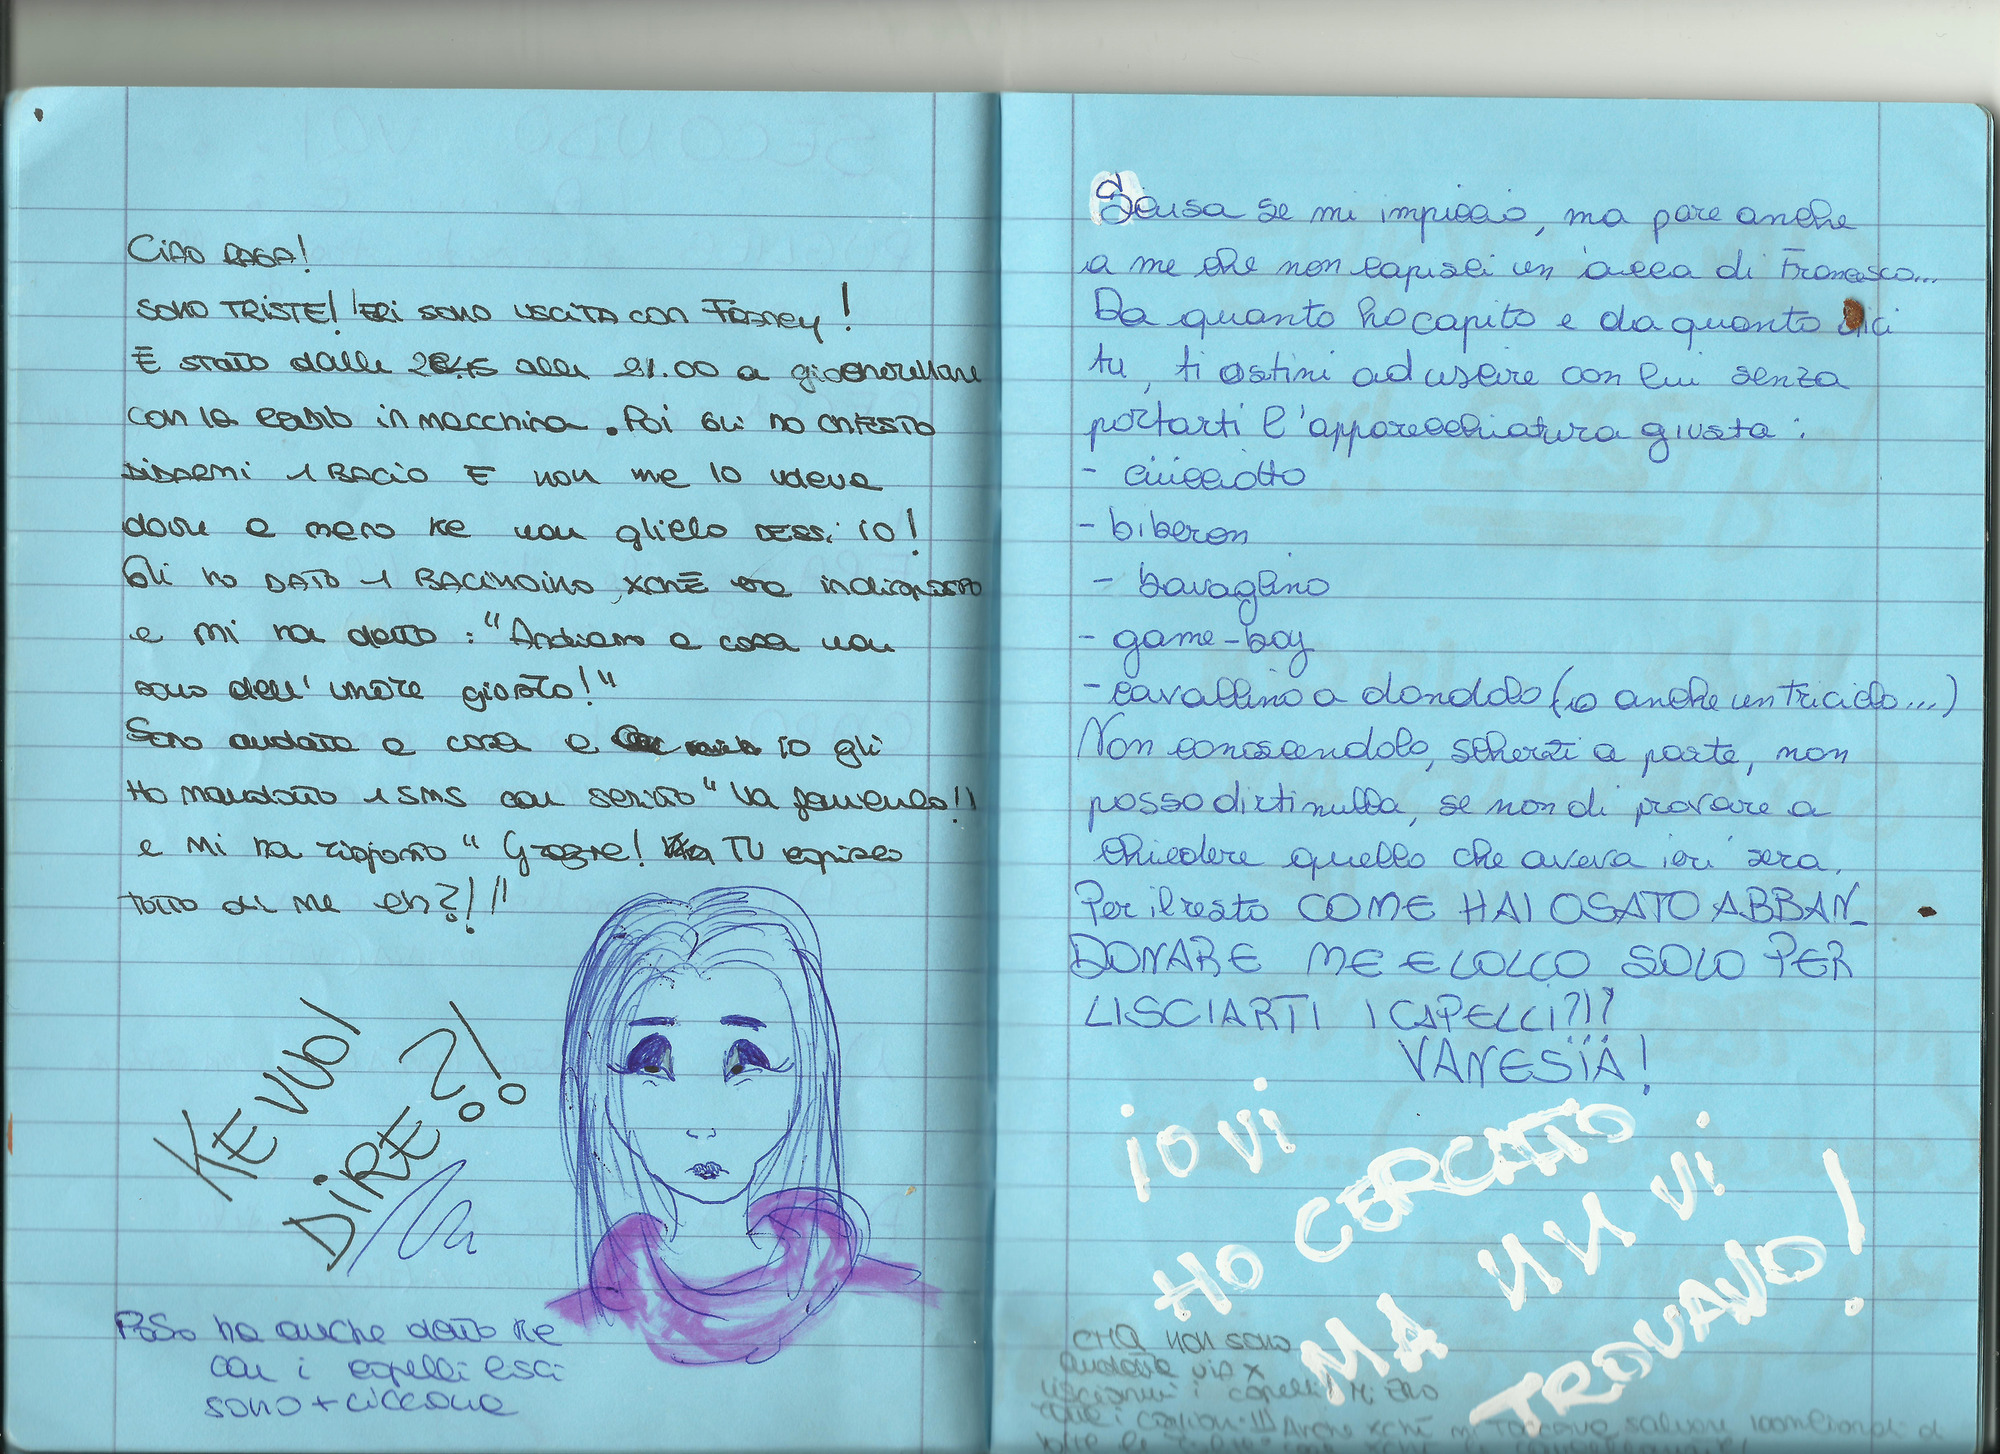 CIAO RAGA!
SONO TRISTE! IERI SONO USCITA CON
È stato dalle alle 21.00 a
con la in macchina. Poi GLI HO CHIESTO
DI DARMI 1 BACIO E non me lo voleva
dare a meno ke non glielo DESSI IO!
Gli ho DATO 1 BACINOINO XCHÈ era
e mi ha detto: "Andiamo a casa non
sono dell'umore giusto!"
Sono andata a casa e io gli
HO mandato 1 SMS con scritto "Va fanculo!!
e mi ha risposto " Grazie! TU capisci
tutto di me eh?!!"
KE VUOI
DIRE?!
PoSo ha anche detto ke
con i capelli lisci
sono + cicciona
Scusa se mi impiccio, ma pare anche
a me che non capisci un'acca di Francesco...
Da quanto ho capito e da quanto dici
tu, ti ostini ad uscire con lui senza
portarti l'apparecchiatura giusta:
- ciucciotto
- biberon
- bavaglino
- game-boy
- cavallino a dondolo (o anche un triciclo...)
Non conoscendolo, scherzi a parte, non
posso dirti nulla, se non di provare a
chiedere quello che aveva ieri sera.
Per il resto COME HAI OSATO ABBAN-
DONARE ME E LOLLO SOLO PER
LISCIARTI I CAPELLI?!?
VANESIA!
IO VI
HO CERCATO
MA NN VI
TROVAVO!
non sono
andata via x
lisciarmi i capelli! Mi